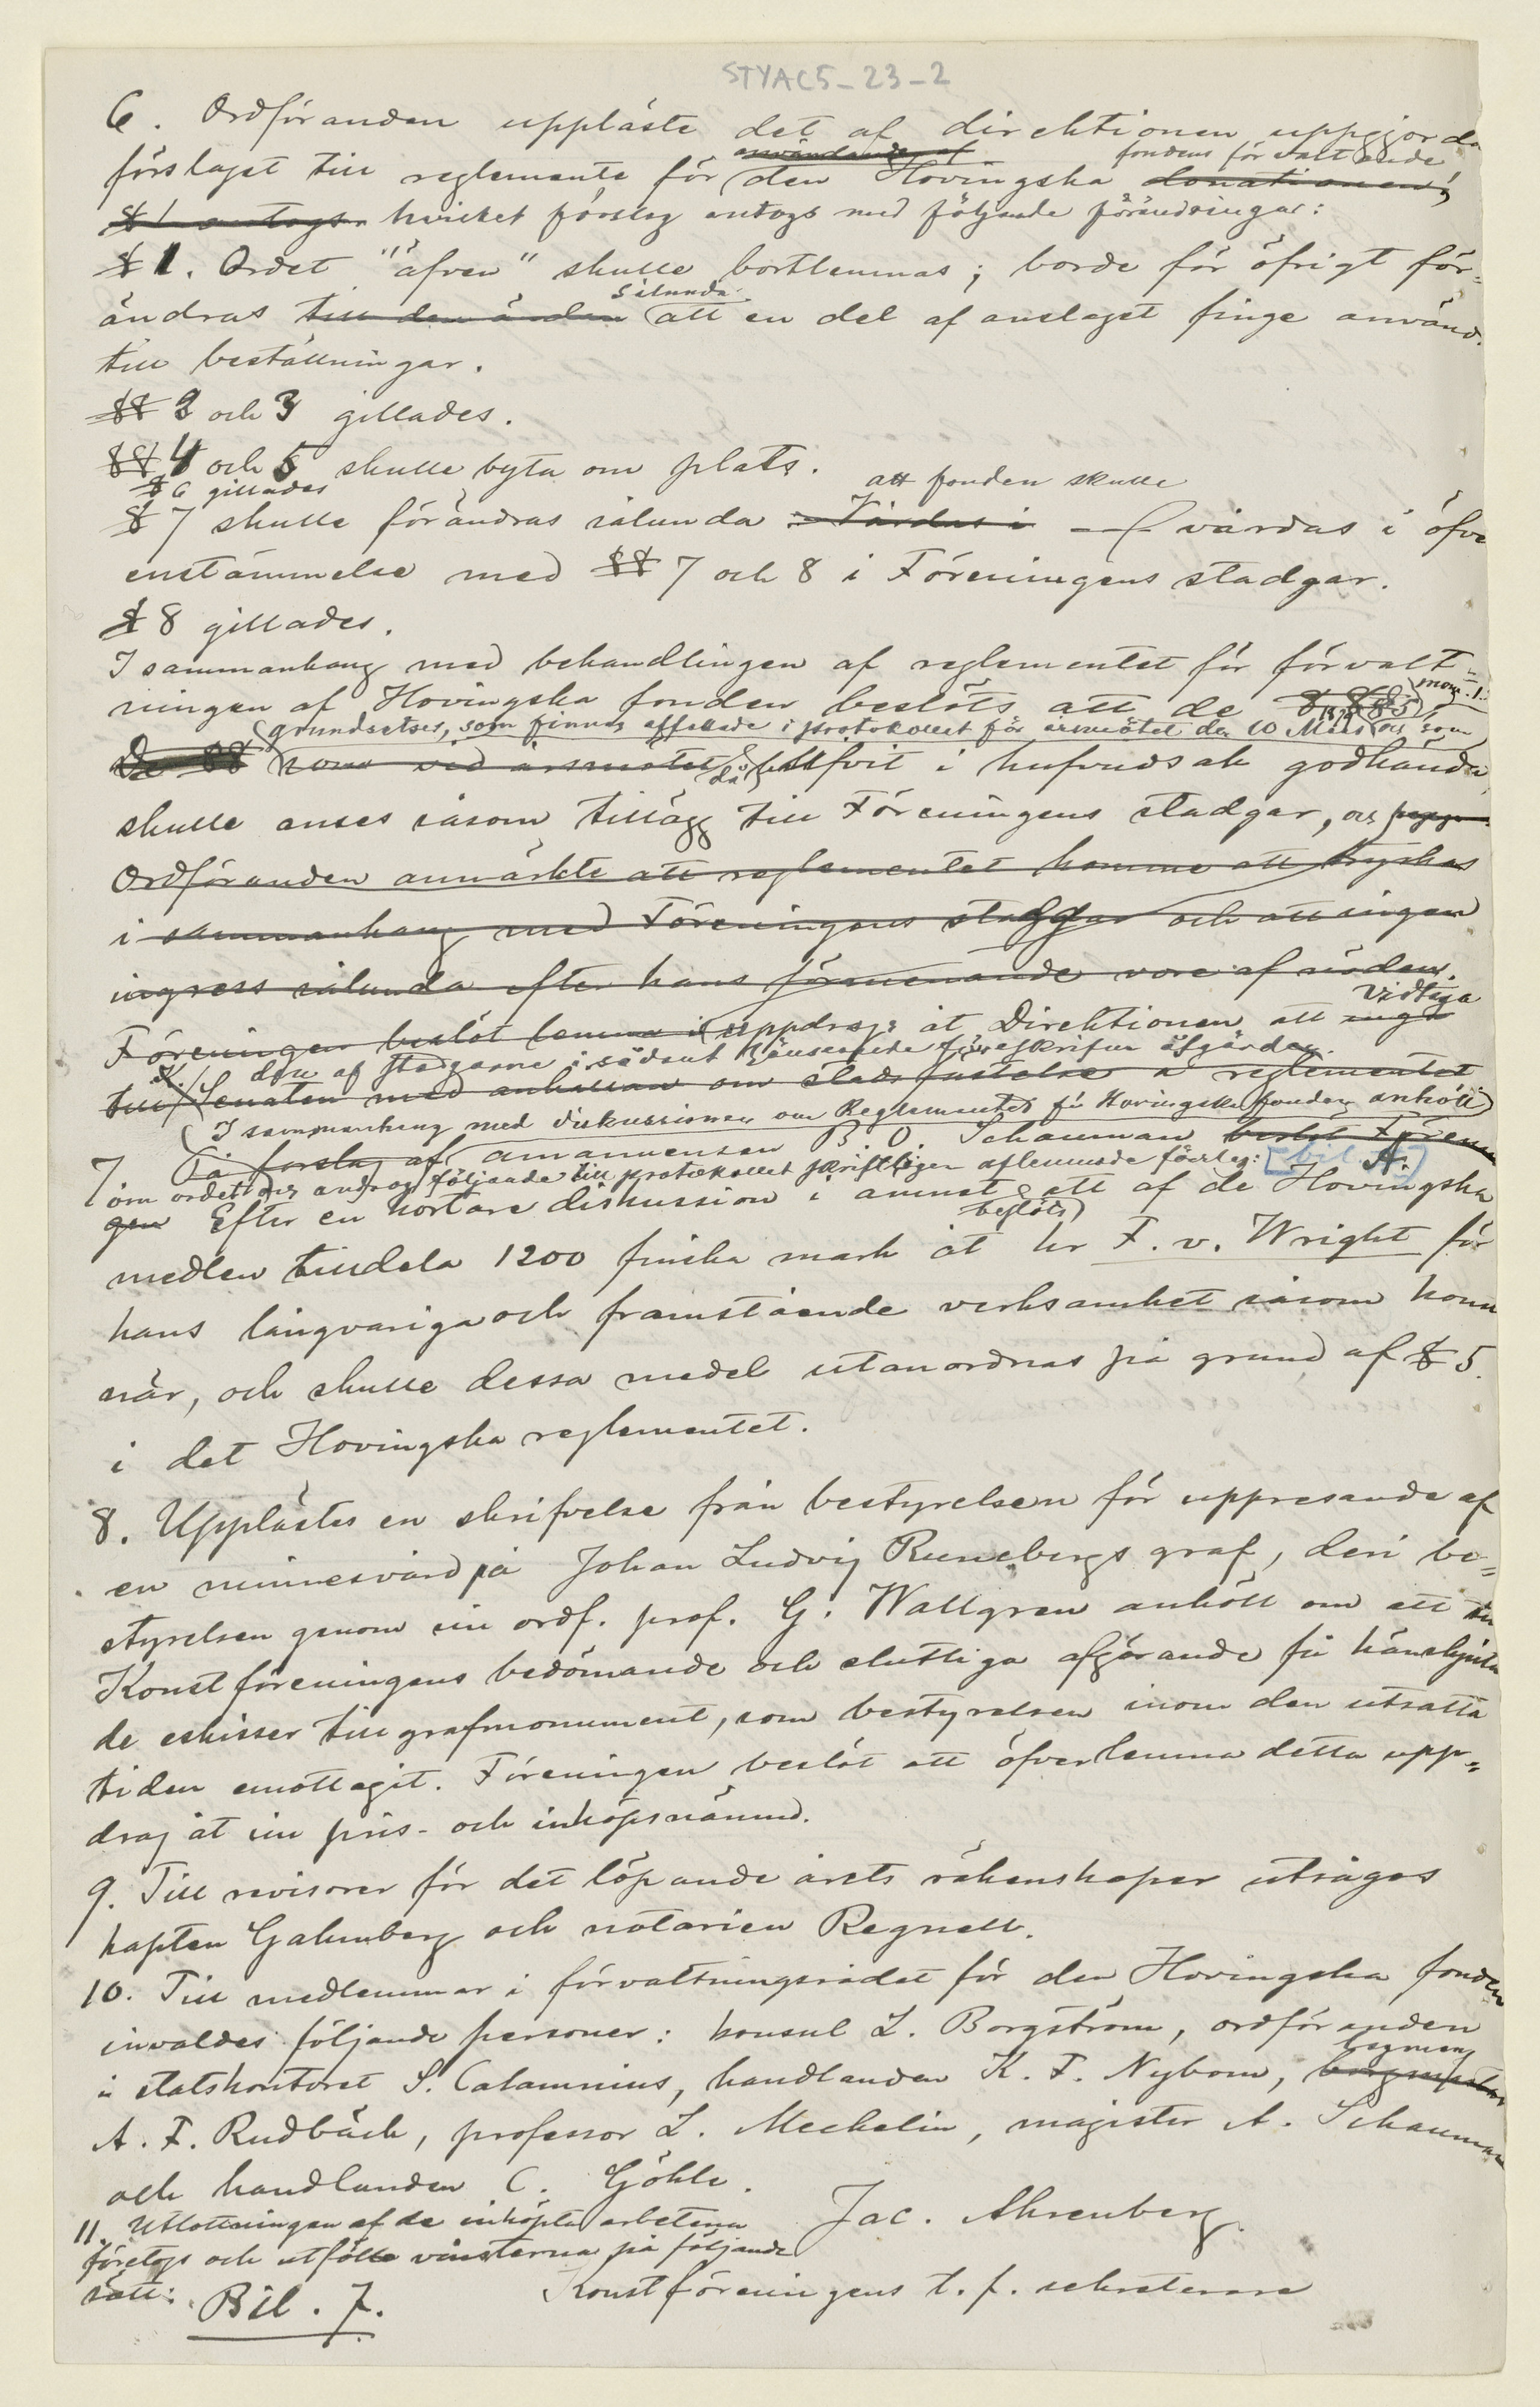 STYAC5-23-2
6. Ordföranden uppläste det af direktionen uppgjorda
användande af fondens förvaltande
förslaget till reglemente för den Hovingska donationen,
§ 1 antogs hvilket förslag antogs med följande förändringar:
§ 1. Ordet "äfven" skulle bortlemnas; borde för öfrigt för-
sålunda
ändras till den ändan att en del af anslaget finge använd.
till beställningar.
§§ 2 och 3 gillades.
§§ 4 och 5 skulle byta om plats.
§ 6 gillades att fonden skulle
§ 7 skulle förändras sålunda: Vårdas i vårdas i öfve
enstämmelse med §§ 7 och 8 i Föreningens stadgar.
§ 8 gillades.
I sammanhang med behandlingen af reglementet för förvalt-
mom. 1.
ningen af Hovingska fonden beslöts att de
grundsatser, som finnas affattade i protokollet för årsmötet den 10 Mars och som
De §§ som vid årsmötet då blifvit i hufvudsak godkända
skulle anses såsom tillägg till Föreningens stadgar, och
Ordföranden anmärkte att reglementet komme att tryckas
i sammanhang med Föreningens stadgar och att ingen
ingress sålunda efter hans förmenande vore af nöden.
vidtaga
Föreningen beslöt lemna i uppdrag åt Direktionen att ingå
den af stadgarne i sådant hänseende föreskrifna åtgärder.
till K. Senaten med anhållan om stadfästelse å reglementet
I sammanhang med diskussionen om Reglementet för Hovingska fonden anhöll
7 På förslag af amanuensen B. O. Schauman beslöt Förenin
om ordet och androg följande till protokollet skriftligen aflemnade förslag: [bil. A.]
gen Efter en kortare diskussion i ämnet beslöts att af de Hovingska
medlen tilldela 1200 finska mark åt hr F. v. Wright för
hans långvariga och framstående verksamhet såsom konst
när, och skulle dessa medel utanordnas på grund af § 5.
i det Hovingska reglementet.
8. Upplästes en skrifvelse från bestyrelsen för uppresande af
en minnesvård på Johan Ludvig Runebergs graf, deri be-
styrelsen genom sin ordf. prof. G. Wallgren anhöll om att till
Konstföreningens bedömande och slutliga afgörande få hänskjuta
de eskisser till grafmonument, som bestyrelsen inom den utsatta
tiden emottagit. Föreningen beslöt att öfverlemna detta upp-
drag åt sin pris- och inköpsnämnd.
9. Till revisorer för det löpande årets räkenskaper utsågos
kapten Gahmberg och notarien Regnell.
10. Till medlemmar i förvaltningsrådet för den Hovingska fonden
invaldes följande personer: konsul L. Borgström, ordföranden
i statskontoret S. Calamnius, handlanden K. F. Nybom,
A. F. Rudbäck, professor L. Mechelin, magister A. Schauman
och handlanden C. Göhle.
11. Utlottningen af de inköpta arbetena
företogs och utföllo vinsterna på följande
sätt: Bil. 7.
Jac. Ahrenberg.
Konstföreningens t. f. sekreterare